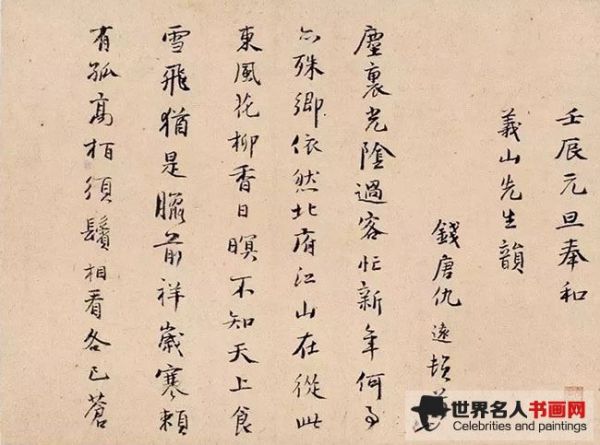 壬辰元旦奉和
義山先生韻
錢唐仇遠頓
塵裏光陰過客忙新年何事
殊鄉依然北府江山在從此
東風花柳香日暝不知天上食
雪飛猶是臘前祥歲寒賴
有孤高栢須鬢相看各已蒼
世界名人书画网
Celebrities and paintings